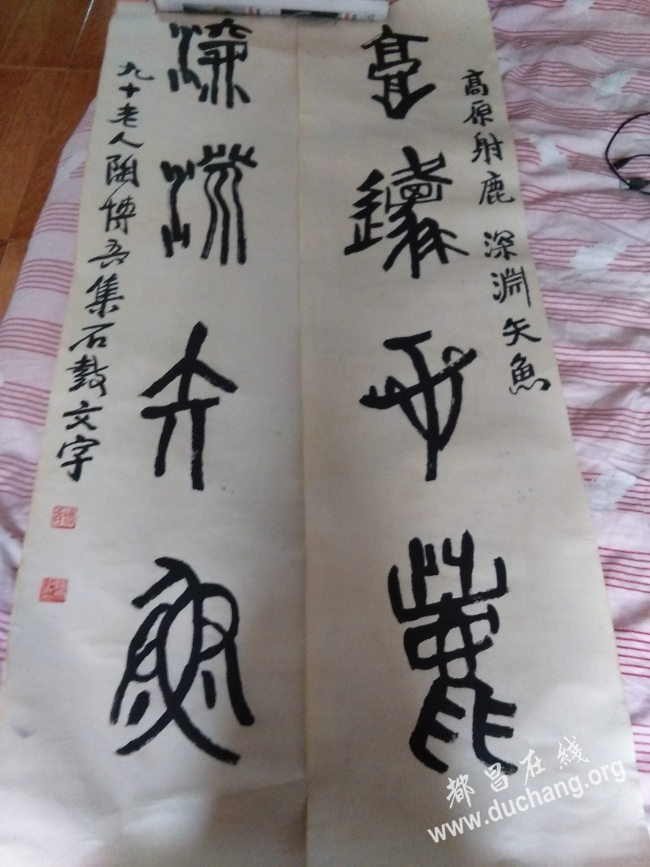 高原射鹿 深淵矢魚
高邍射鹿
深淵矢魚
九十老人陶博吾集石鼓文字
都昌在线
www.duchang.org